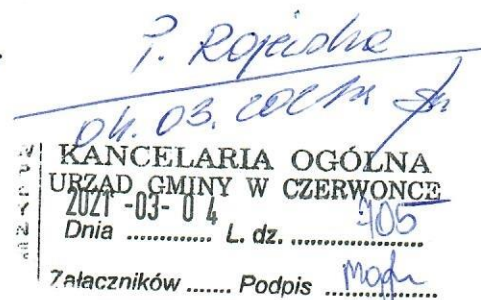 P.
04.03.2021
KANCELARIA OGÓLNA
URZĄD GMINY W CZERWONCE
2021 -03- 0 4
Dnia ............ L. dz. .................. 705
Załączników ....... Podpis ..................